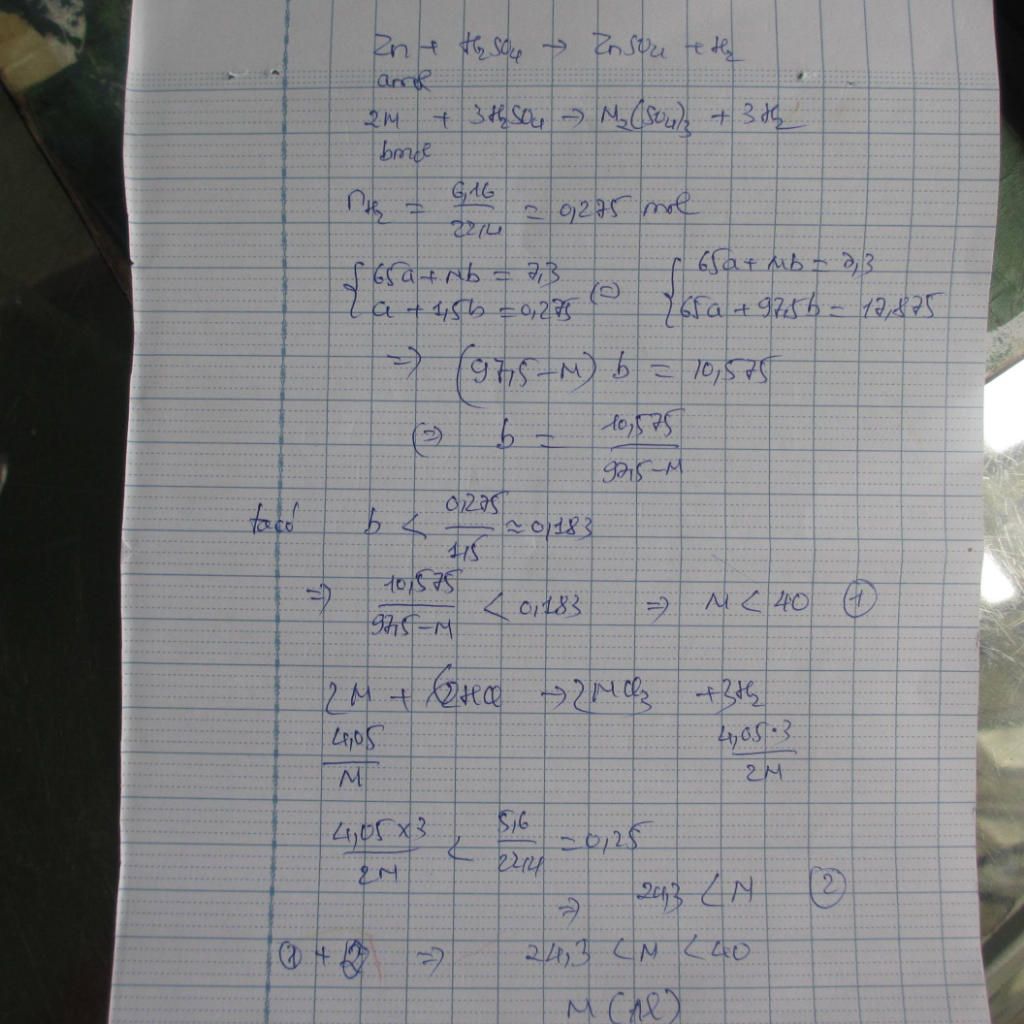 Zn + H₂SO₄ → ZnSO₄ + H₂
amol
2M + 3H₂SO₄ → M₂(SO₄)₃ + 3H₂
bmol
nH₂ = 6,16/22,4 = 0,275 mol
{ 65a + Mb = 7,3 (=) { 65a + Mb = 7,3
a + 1,5b = 0,275 65a + 97,5b = 17,875
=> (97,5 - M) b = 10,575
(=) b = 10,575/97,5-M
ta có b < 0,275/1,5 ≈ 0,183
=> 10,575/97,5-M < 0,183 => M < 40 ①
2M + HCl → 2MCl₃ + 3H₂
4,05/M 4,05·3/2M
4,05×3/2M < 5,6/22,4 = 0,25
=> 24,3 < M ②
① + ② => 24,3 < M < 40
M (Al)